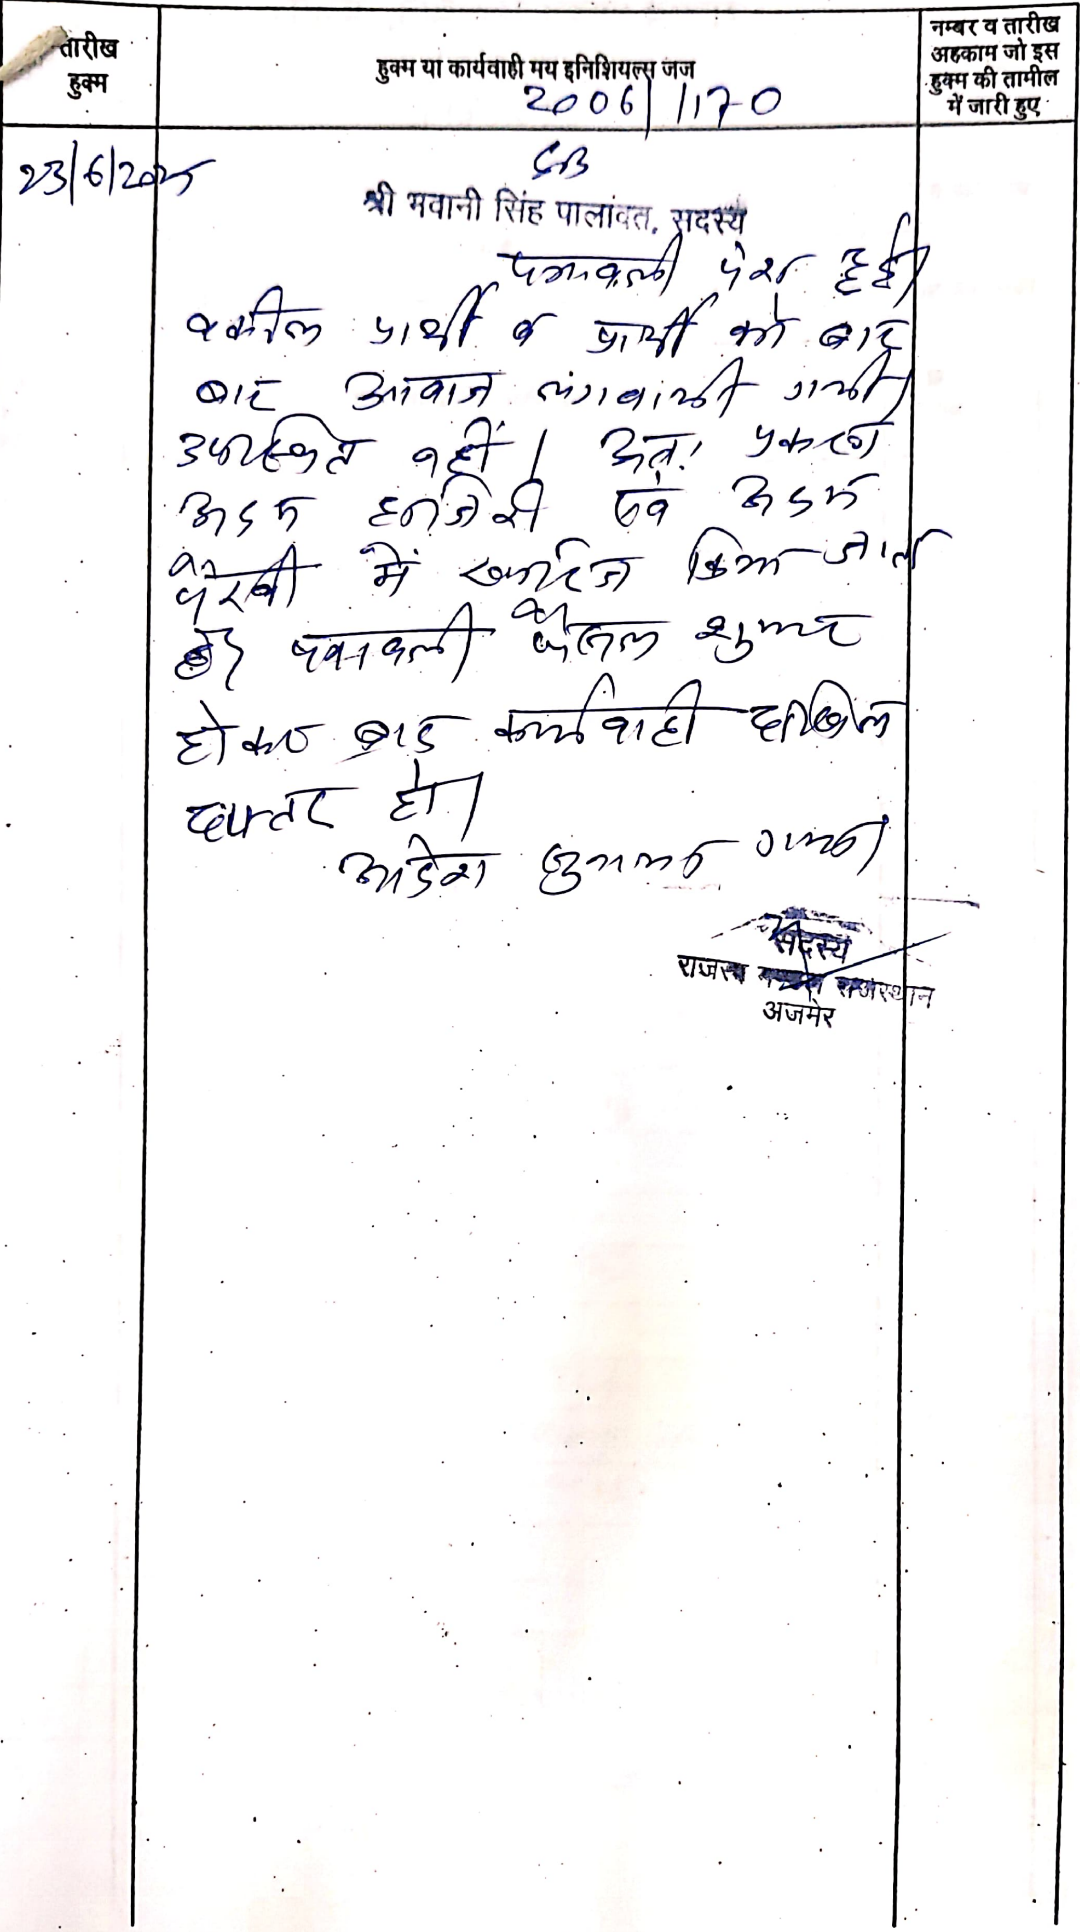 तारीख
हुक्म
हुक्म या कार्यवाही मय इनिशियल्स जज
नम्बर व तारीख
अहकाम जो इस
हुक्म की तामील
में जारी हुए
2006/1170
23/6/2025
SB
श्री भवानी सिंह पालावत, सदस्य
पत्रावली पेश हुई।
वकील प्रार्थी व प्रार्थी को बार
बार आवाज लगवायी गयी।
उपस्थित नहीं। अतः प्रकरण
अदम हाजिरी एवं अदम
पैरवी में खारिज किया जाता
है। पत्रावली फैसल शुमार
होकर बाद कार्यवाही दाखिल
दफ्तर हो।
आदेश सुनाया गया।
सदस्य
राजस्व मण्डल राजस्थान
अजमेर